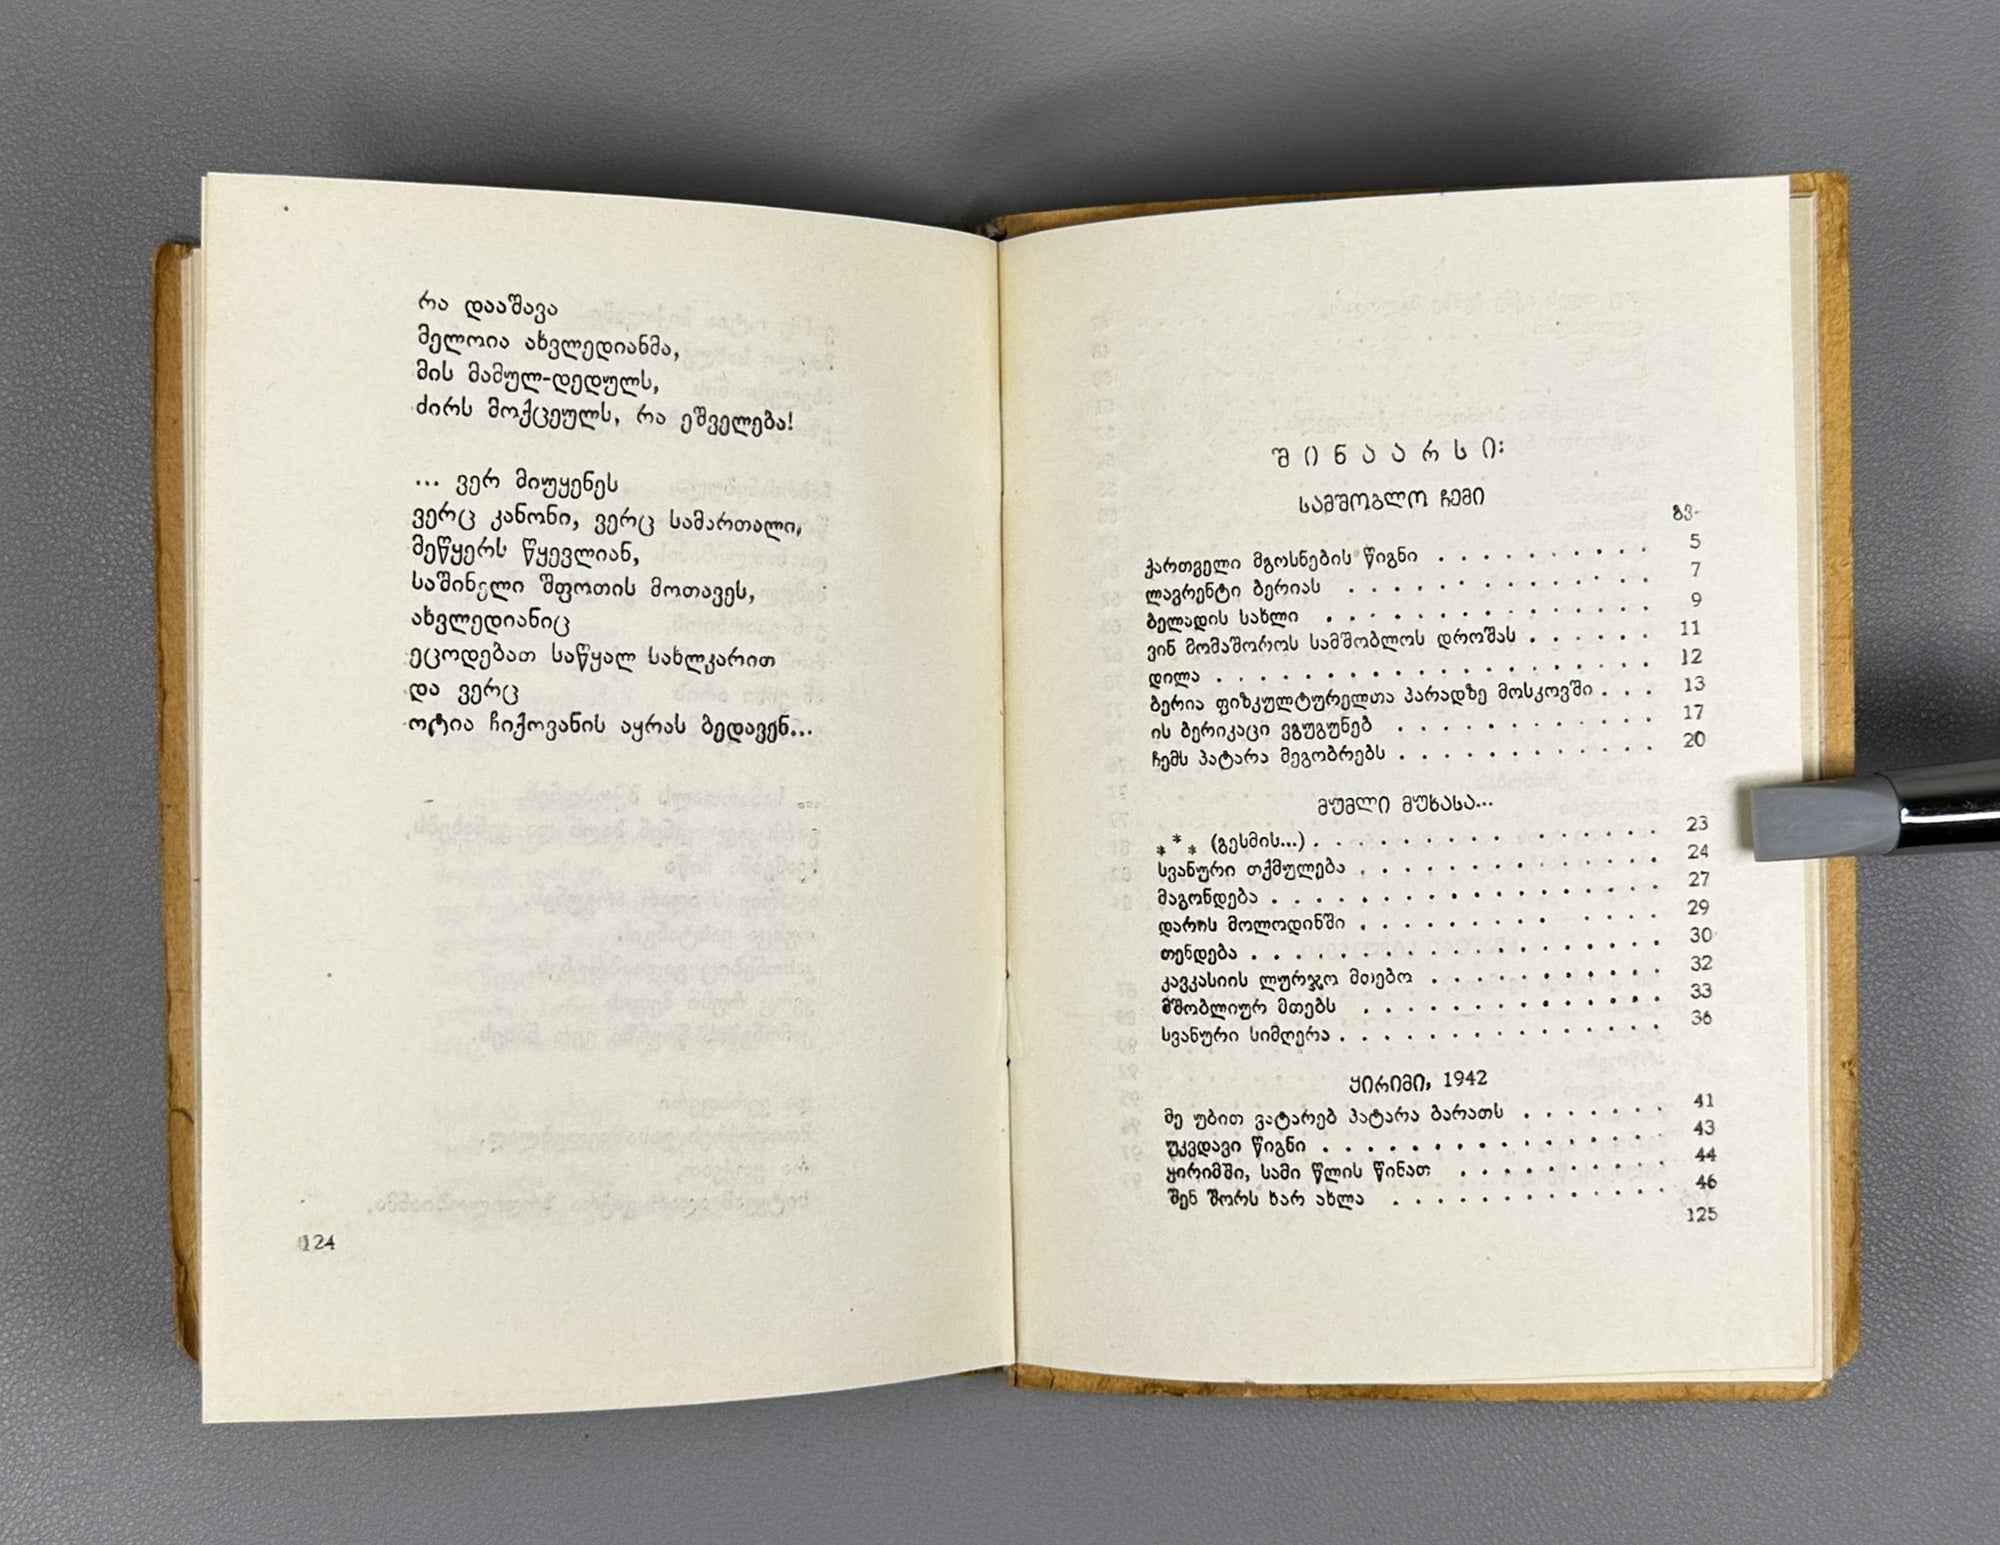 რა დააშავა
მელოია ახვლედიანმა,
მის მამულ-დედულს,
ძირს მოქცეულს, რა ეშველება!
... ვერ მიუყენეს
ვერც კანონი, ვერც სამართალი,
მეწყერს წყევლიან,
საშინელი შფოთის მოთავეს,
ახვლედიანიც
ეცოდებათ საწყალ სახლკარით
და ვერც
ოტია ჩიქოვანის აყრას ბედავენ...
124
შინაარსი:
სამშობლო ჩემი
გვ.
ქართველი მგოსნების წიგნი . . . . . . . . . . 5
ლავრენტი ბერიას . . . . . . . . . . . . . 7
ბელადის სახლი . . . . . . . . . . . . . . 9
ვინ მომაშოროს სამშობლოს დროშას . . . . . . 11
დილა . . . . . . . . . . . . . . . . . . 12
ბერია ფიზკულტურელთა პარადზე მოსკოვში . . . 13
ის ბერიკაცი ვგუგუნებ . . . . . . . . . . . 17
ჩემს პატარა მეგობრებს . . . . . . . . . . . 20
მუმლი მუხასა...
* * * (გესმის...) . . . . . . . . . . . . . . 23
სვანური თქმულება . . . . . . . . . . . . . 24
მაგონდება . . . . . . . . . . . . . . . . 27
დარის მოლოდინში . . . . . . . . . . . . . 29
თენდება . . . . . . . . . . . . . . . . . 30
კავკასიის ლურჯო მთებო . . . . . . . . . . 32
მშობლიურ მთებს . . . . . . . . . . . . . 33
სვანური სიმღერა . . . . . . . . . . . . . . 36
ყირიმი, 1942
მე უბით ვატარებ პატარა ბარათს . . . . . . . 41
უკვდავი წიგნი . . . . . . . . . . . . . . 43
ყირიმში, სამი წლის წინათ . . . . . . . . . 44
შენ შორს ხარ ახლა . . . . . . . . . . . . 46
125